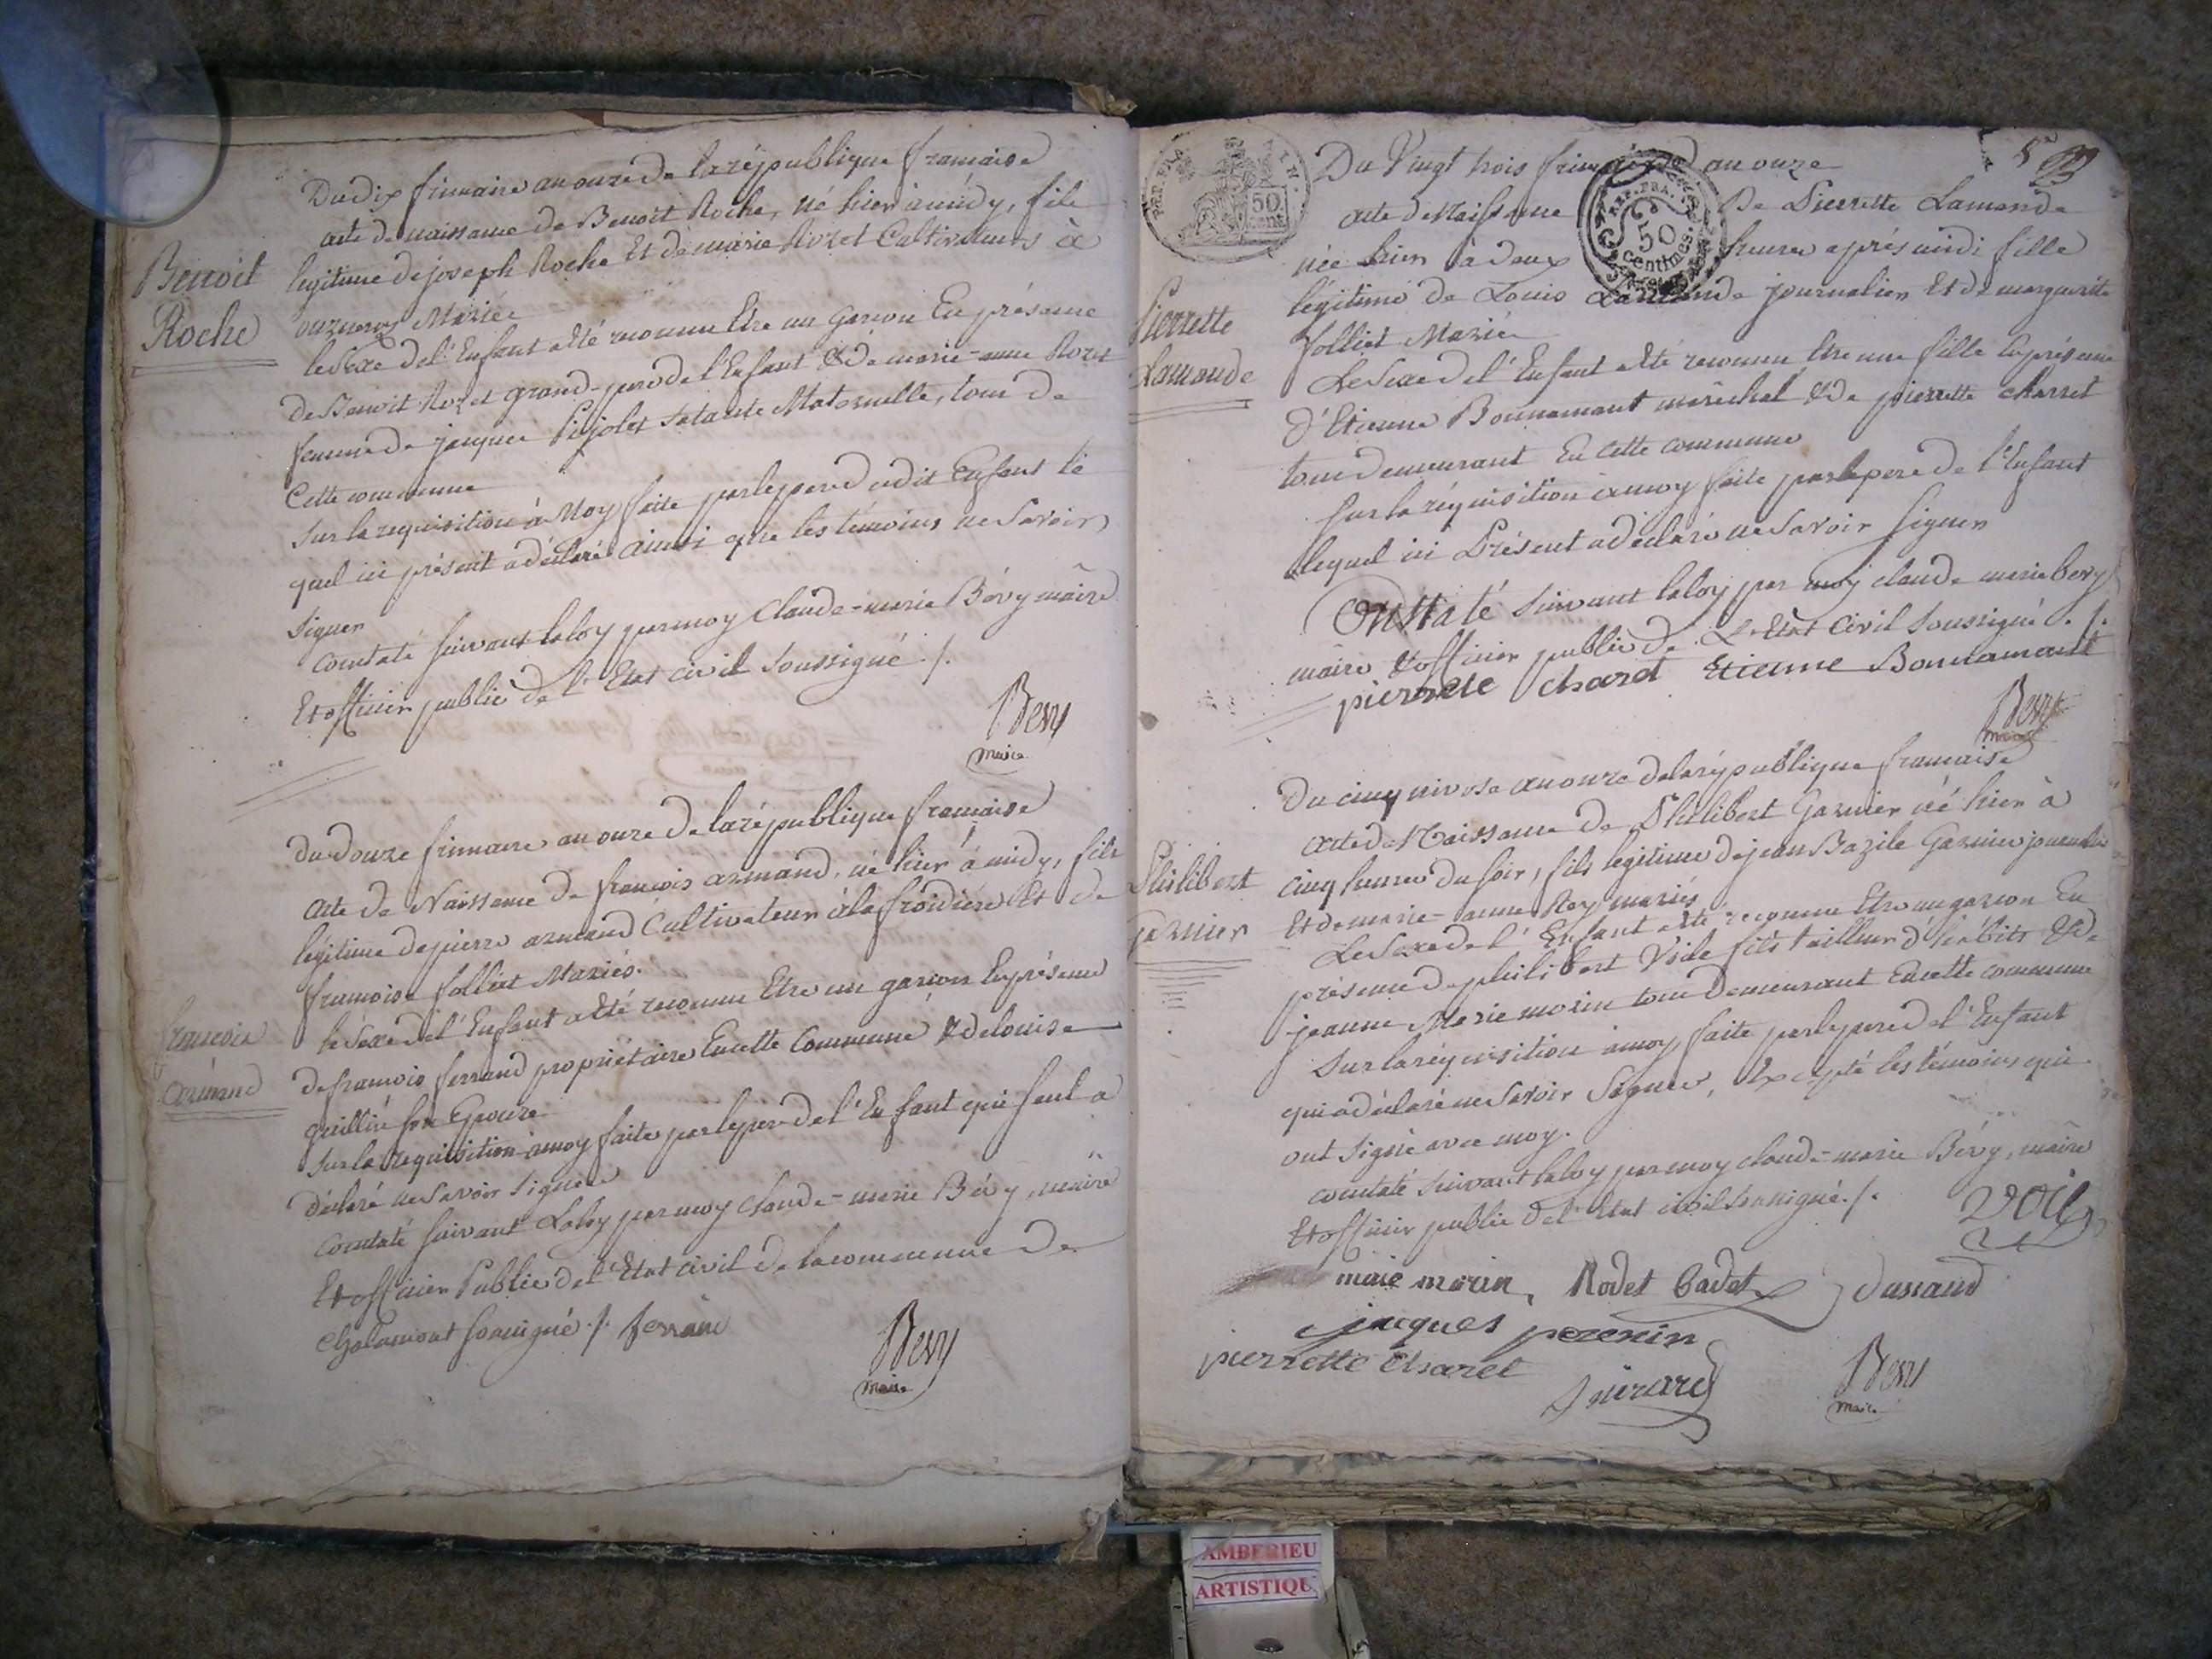 Du dix frimaire an onze de la république française
acte de naissance de Benoit Roche, né hier à midy, fils
legitime de joseph Roche Et de marie Rozet Cultivateurs à
Mariés
Benoit
Roche
le Sexe de l'Enfant a été reconnu Etre un garson En présence
de Benoit Rozet grand-pere de l'Enfant & de marie-anne Rozet
femme de jacques Pijolet sa tante Maternelle, tous de
Cette commune
Sur la requisition à Moy faite par le pere dudit Enfant le
quel ici présent a déclaré ainsi que les témoins ne Savoir
Signer
constaté suivant la loy par moy Claude-marie Bévy maire
Et officier public de l'Etat civil soussigné ./.
Bevy
maire
du douze frimaire an onze de la république française
acte de Naissance de françois armand, né hier à midy, fils
legitime de pierre armand Cultivateur à la froidière Et de
françoise folliet Mariés.
françois
armand
le Sexe de l'Enfant a été reconnu Etre un garson En présence
de françois ferrand propriétaire En cette Commune & de louise
guillin son Epouze
Sur la requisition à moy faite par le pere de l'Enfant qui seul a
déclaré ne Savoir Signer
constaté suivant La loy par moy Claude-marie Bévy, maire
Et officier Public de l'Etat civil de la commune de
chalamont soussigné ./. ferrand
Bevy
maire
5
REP. FRA.
50
cent.
Du Vingt trois frimaire an onze
acte de Naissance De Pierrette Lamande
née hier à deux heures après midi fille
REP. FRA.
50
centimes.
légitime de Louis Lamande journalier Et de marguerite
folliet Mariés
Pierrette
Lamande
Le Sexe de l'Enfant a été reconnu Etre une fille En présence
d'Etienne Bonnamant maréchal & de pierrette charret
tous demeurant En cette commune
Sur la réquisition à moy faite par le pere de l'Enfant
lequel ici Présent a déclaré ne Savoir Signer
Constaté Suivant la loy par moy claude marie bevy
maire & officier public de L'Etat Civil soussigné ./.
pierrete charet Etienne Bonnamant
Bevy
maire
Du cinq nivose an onze de la république française
acte de Naissance de Philibert Garnier né hier à
cinq heures du soir, fils legitime de jean Bazile Garnier journalier
Et de marie-anne Rey mariés
Philibert
garnier
Le Sexe de l'Enfant a été reconnu Etre un garson En
présence de philibert Voile fils tailleur d'habits & de
jeanne Marie morin tous demeurant En cette commune
Sur la réquisition à moy faite par le pere de l'Enfant
qui a déclaré ne Savoir Signer, Excepté les témoins qui
ont Signé avec moy.
constaté suivant la loy par moy claude-marie Bévy, maire
Et officier public de l'Etat civil soussigné ./.
marie morin, Rodet Cadet Dussaud
jacques perenin
pierrette charet
Bevy
maire
AMBERIEU
ARTISTIQU